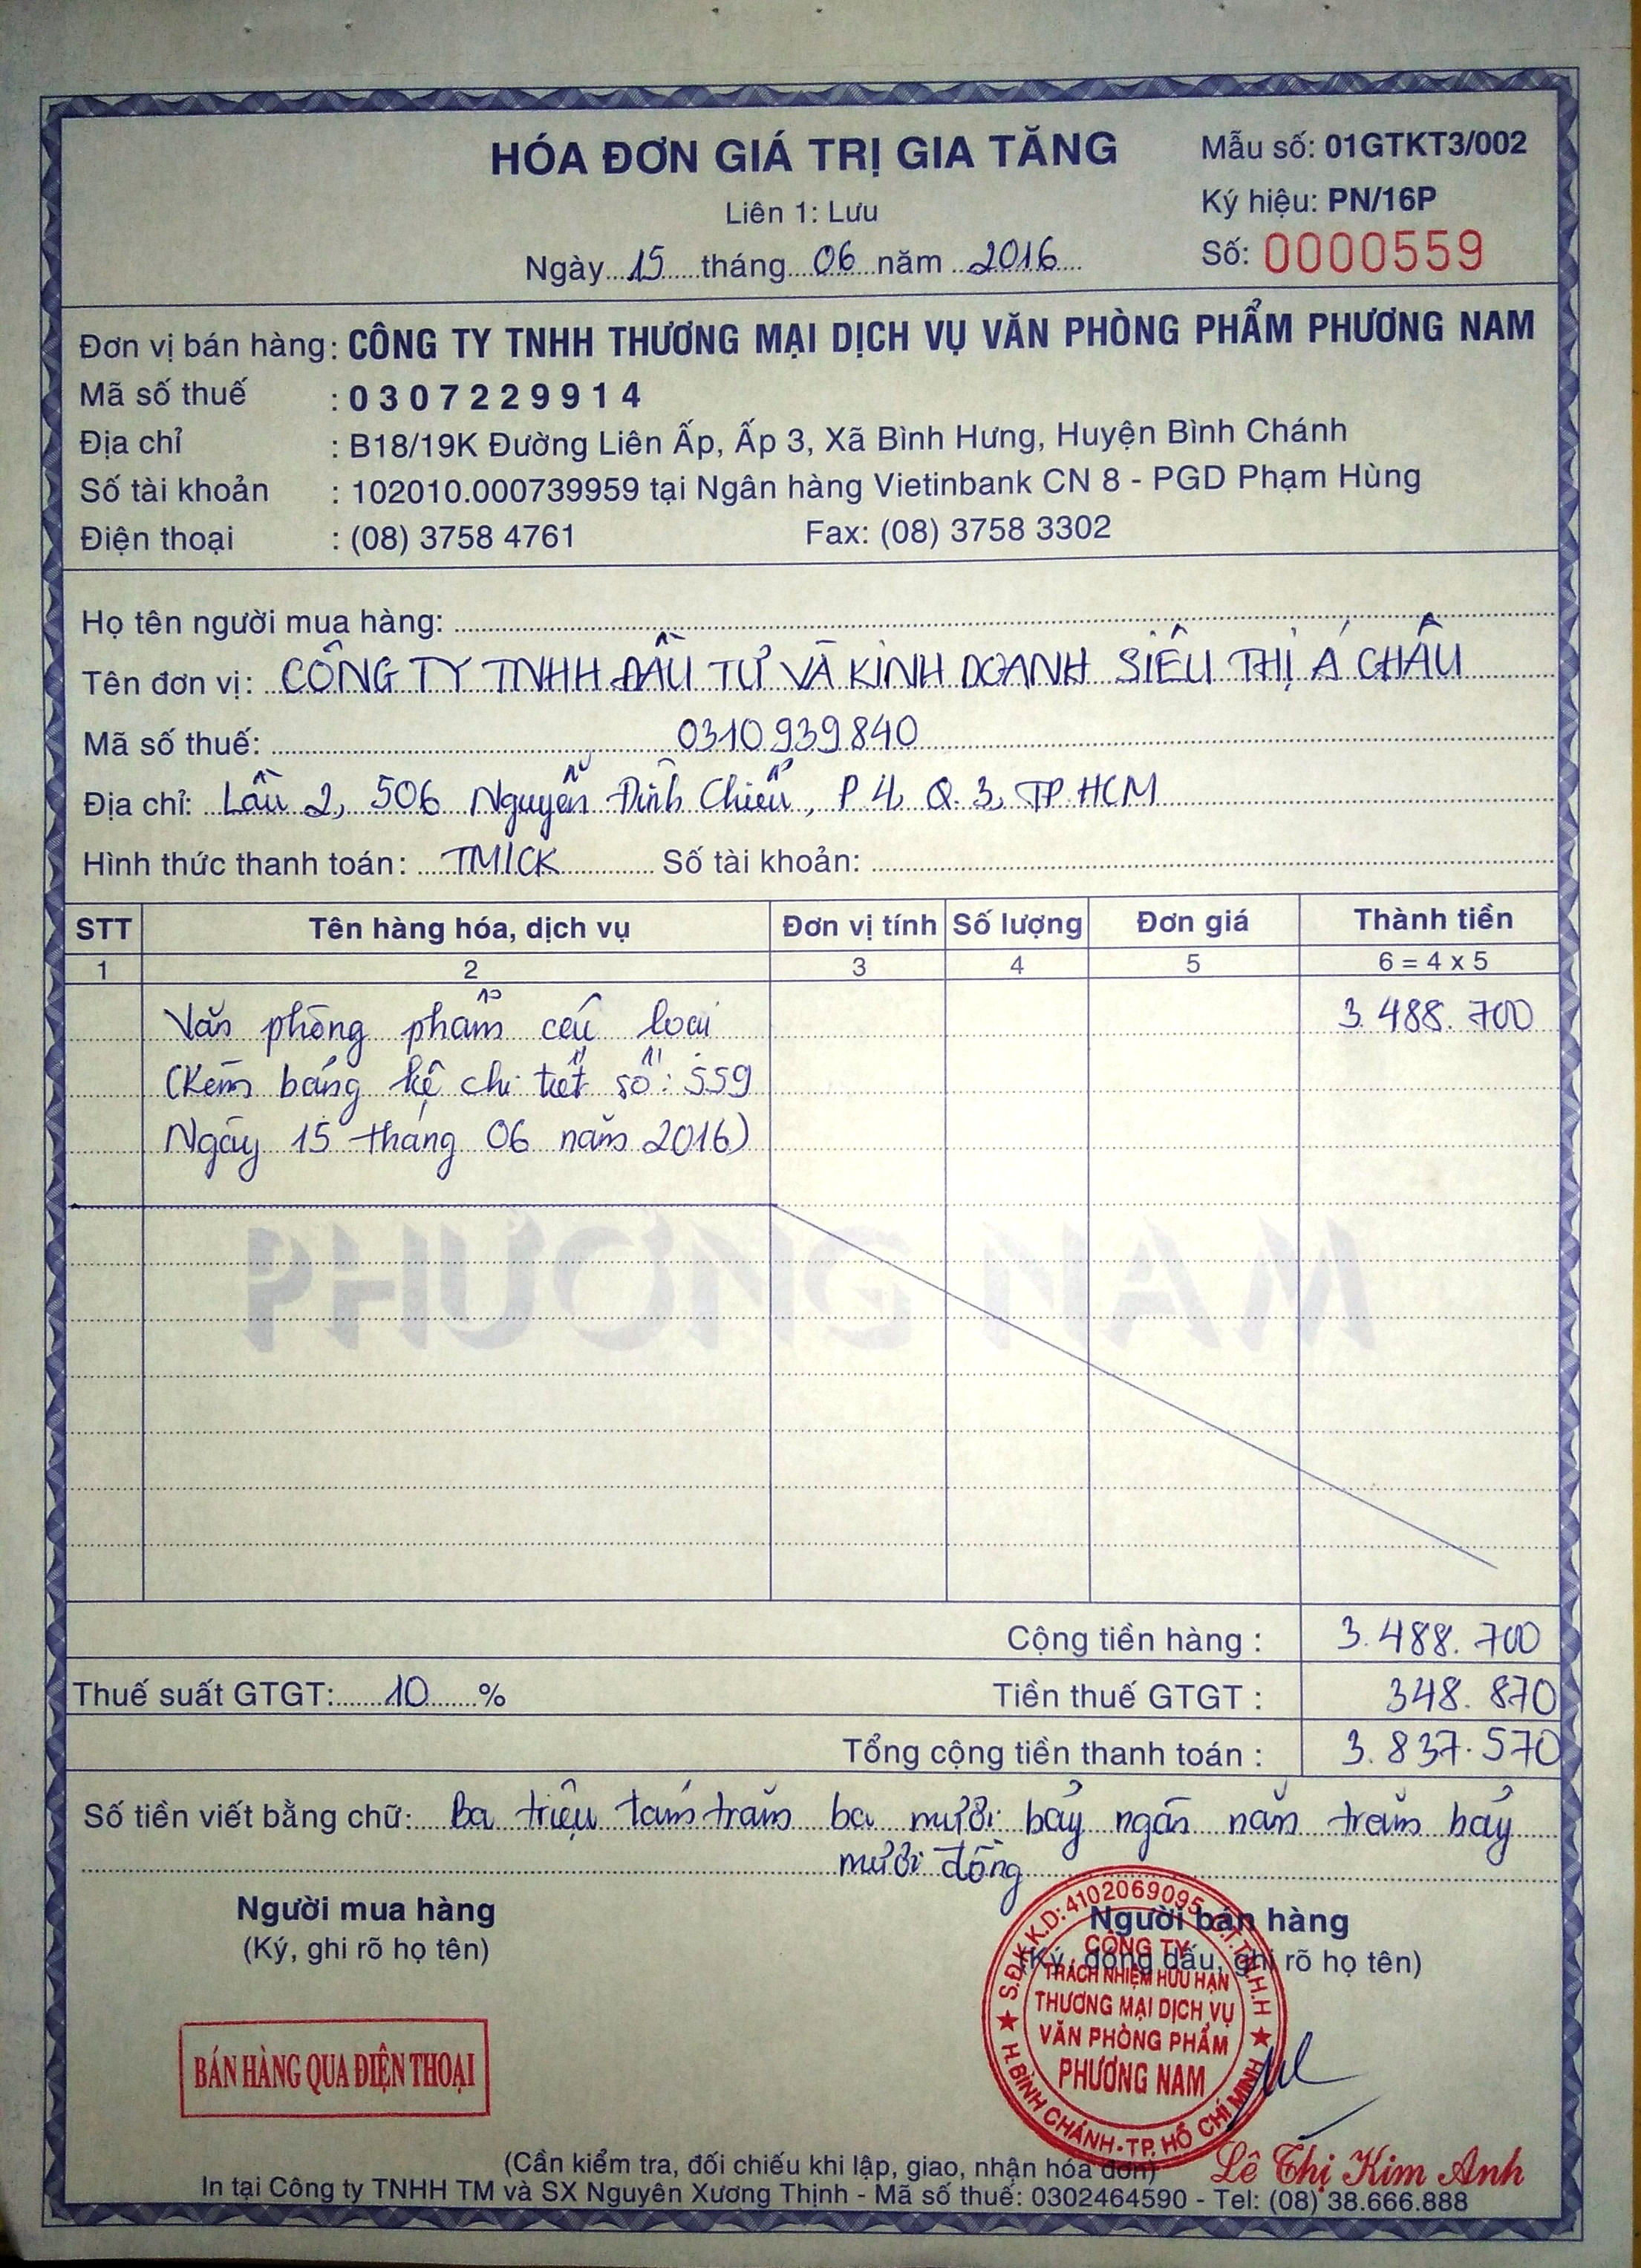 HÓA ĐƠN GIÁ TRỊ GIA TĂNG
Liên 1: Lưu
Ngày 15 tháng 06 năm 2016
Mẫu số: 01GTKT3/002
Ký hiệu: PN/16P
Số: 0000559
Đơn vị bán hàng: CÔNG TY TNHH THƯƠNG MẠI DỊCH VỤ VĂN PHÒNG PHẨM PHƯƠNG NAM
Mã số thuế : 0307229914
Địa chỉ : B18/19K Đường Liên Ấp, Ấp 3, Xã Bình Hưng, Huyện Bình Chánh
Số tài khoản : 102010.000739959 tại Ngân hàng Vietinbank CN 8 - PGD Phạm Hùng
Điện thoại : (08) 3758 4761 Fax: (08) 3758 3302
Họ tên người mua hàng:
Tên đơn vị: CÔNG TY TNHH ĐẦU TƯ VÀ KINH DOANH SIÊU THỊ Á CHÂU
Mã số thuế: 0310939840
Địa chỉ: Lầu 2, 506 Nguyễn Đình Chiểu, P 4, Q. 3, TP. HCM
Hình thức thanh toán: TM/CK Số tài khoản:
STT Tên hàng hóa, dịch vụ Đơn vị tính Số lượng Đơn giá Thành tiền
1 2 3 4 5 6 = 4 x 5
Văn phòng phẩm các loại 3.488.700
(Kèm bảng kê chi tiết số: 559
Ngày 15 tháng 06 năm 2016)
PHƯƠNG NAM
Cộng tiền hàng : 3.488.700
Thuế suất GTGT: 10 % Tiền thuế GTGT : 348.870
Tổng cộng tiền thanh toán : 3.837.570
Số tiền viết bằng chữ: Ba triệu tám trăm ba mươi bảy ngàn năm trăm bảy
mươi đồng
Người mua hàng
(Ký, ghi rõ họ tên)
Người bán hàng
(Ký, đóng dấu, ghi rõ họ tên)
BÁN HÀNG QUA ĐIỆN THOẠI
S.Đ.K.K.D: 4102069095 - C.T.T.N.H.H
CÔNG TY
TRÁCH NHIỆM HỮU HẠN
THƯƠNG MẠI DỊCH VỤ
VĂN PHÒNG PHẨM
PHƯƠNG NAM
H. BÌNH CHÁNH - TP. HỒ CHÍ MINH
Lê Thị Kim Anh
(Cần kiểm tra, đối chiếu khi lập, giao, nhận hóa đơn)
In tại Công ty TNHH TM và SX Nguyên Xương Thịnh - Mã số thuế: 0302464590 - Tel: (08) 38.666.888